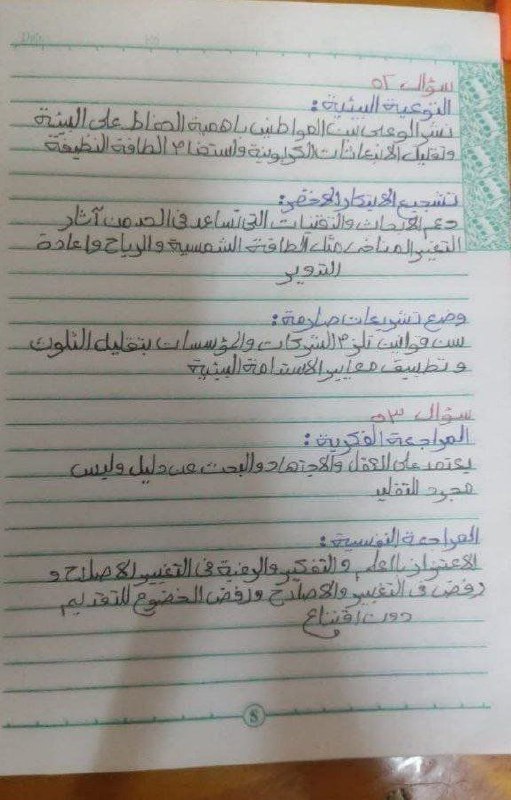 سؤال ٥٢
التوعية البيئية :
نشر الوعي بين المواطنين باهمية الحفاظ على البيئة
وتقليل الانبعاثات الكربونية واستخدام الطاقة النظيفة
تشجيع الابتكار الاخضر:
دعم الابحاث والتقنيات التى تساعد فى الحد من آثار
التغير المناخى مثل الطاقة الشمسية والرياح واعادة
التدوير
وضع تشريعات صارمة :
سن قوانين تلزم الشركات والمؤسسات بتقليل التلوث
و تطبيق معايير الاستدامة البيئية
سؤال ٥٣
المراجعة الفكرية :
يعتمد على العقل والاجتهاد والبحث عن دليل وليس
مجرد التقليد
المراجعة النفسية :
الاعتزاز بالعلم والتفكير والرغبة فى التغيير الاصلاح و
رفض فى التغيير والاصلاح ورفض الخضوع للتقديم
دون اقتناع
8